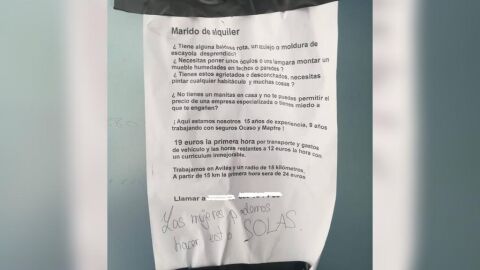 Marido de alquiler
¿ Tiene alguna baldosa rota, un azulejo o moldura de
escayola desprendido?
¿ Necesitas poner unos óculos o una lampara montar un
mueble humedades en techos o paredes ?
¿ Tienes estos agrietados o desconchados, necesitas
pintar cualquier habitáculo y muchas cosas ?
¿ No tienes un manitas en casa y no te puedes permitir el
precio de una empresa especializada o tienes miedo a
que te engañen?
¡ Aquí estamos nosotros 15 años de experiencia, 9 años
trabajando con seguros Ocaso y Mapfre !
19 euros la primera hora por transporte y gastos
de vehículo y las horas restantes a 12 euros la hora con
un curriculum inmejorable.
Trabajamos en Avilés y un radio de 15 kilómetros.
A partir de 15 km la primera hora sera de 24 euros
Llamar a
Las mujeres podemos
hacer esto SOLAS.